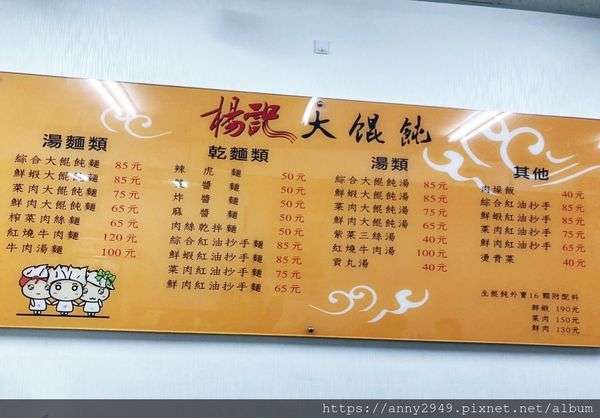 楊記 大餛飩
湯麵類
綜合大餛飩麵 85元
鮮蝦大餛飩麵 85元
菜肉大餛飩麵 75元
鮮肉大餛飩麵 65元
榨菜肉絲麵 65元
紅燒牛肉麵 120元
牛肉湯麵 100元
乾麵類
辣虎麵 50元
醬麵 50元
炸醬麵 50元
麻醬麵 50元
肉絲乾拌麵 50元
綜合紅油抄手麵 85元
鮮蝦紅油抄手麵 85元
菜肉紅油抄手麵 75元
鮮肉紅油抄手麵 65元
湯類
綜合大餛飩湯 85元
鮮蝦大餛飩湯 85元
菜肉大餛飩湯 75元
鮮肉大餛飩湯 65元
紫菜三絲湯 40元
紅燒牛肉湯 100元
貢丸湯 40元
其他
肉燥飯 40元
綜合紅油抄手 85元
鮮蝦紅油抄手 85元
菜肉紅油抄手 75元
鮮肉紅油抄手 65元
燙青菜 40元
生餛飩外賣16顆附配料
鮮蝦 190元
菜肉 150元
鮮肉 130元
https://anny2949.pixnet.net/album